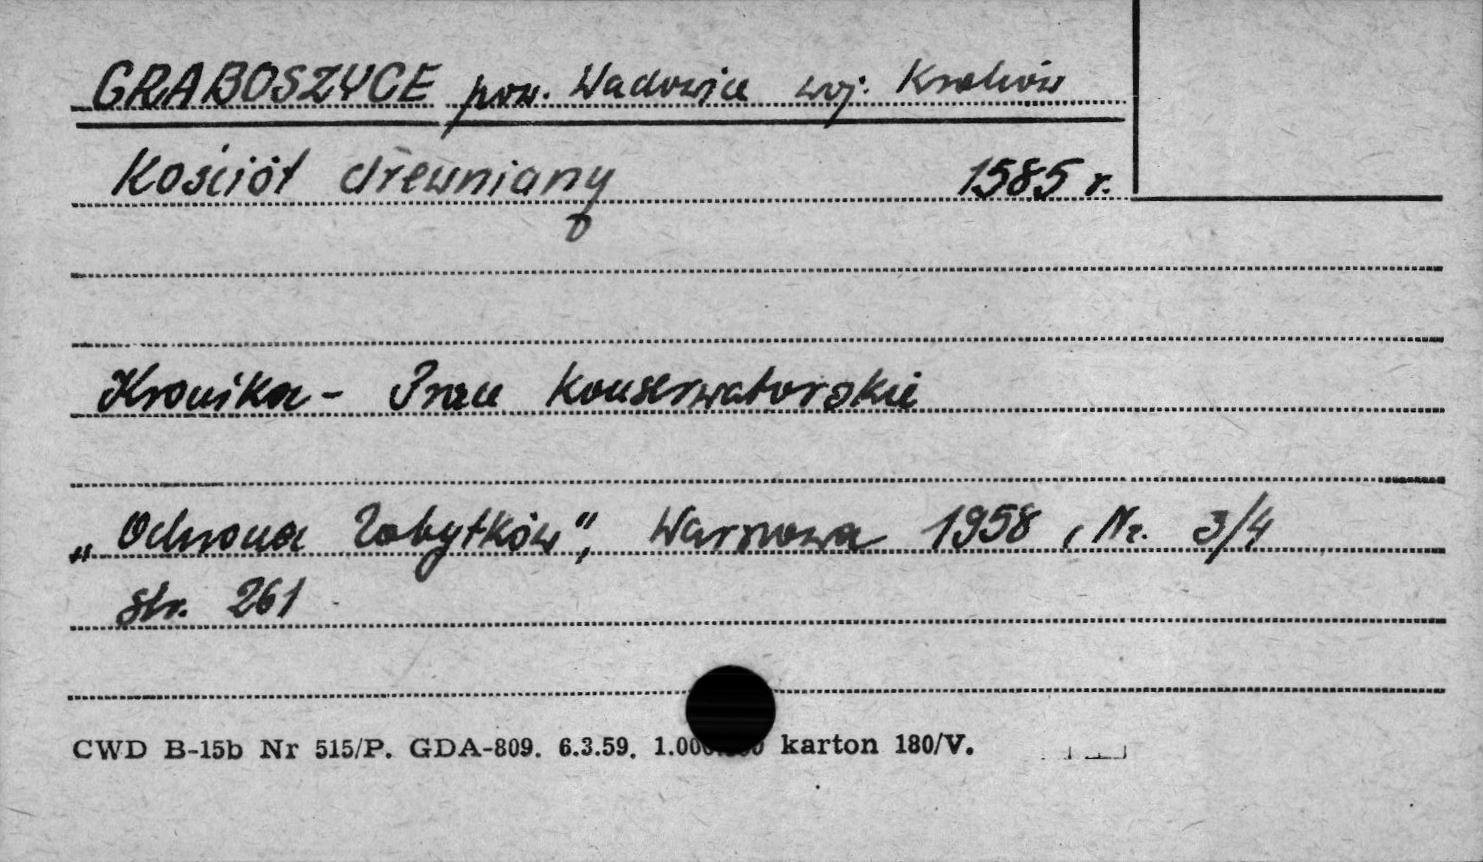 GRABOSZYCE pow. Wadowice woj. Kraków
Kościół drewniany 1585 r.
Kronika - Prace Konserwatorskie
„Ochrona Zabytków", Warszawa 1958, Nr. 3/4
str. 261
CWD B-15b Nr 515/P. GDA-809. 6.3.59. karton 180/V.